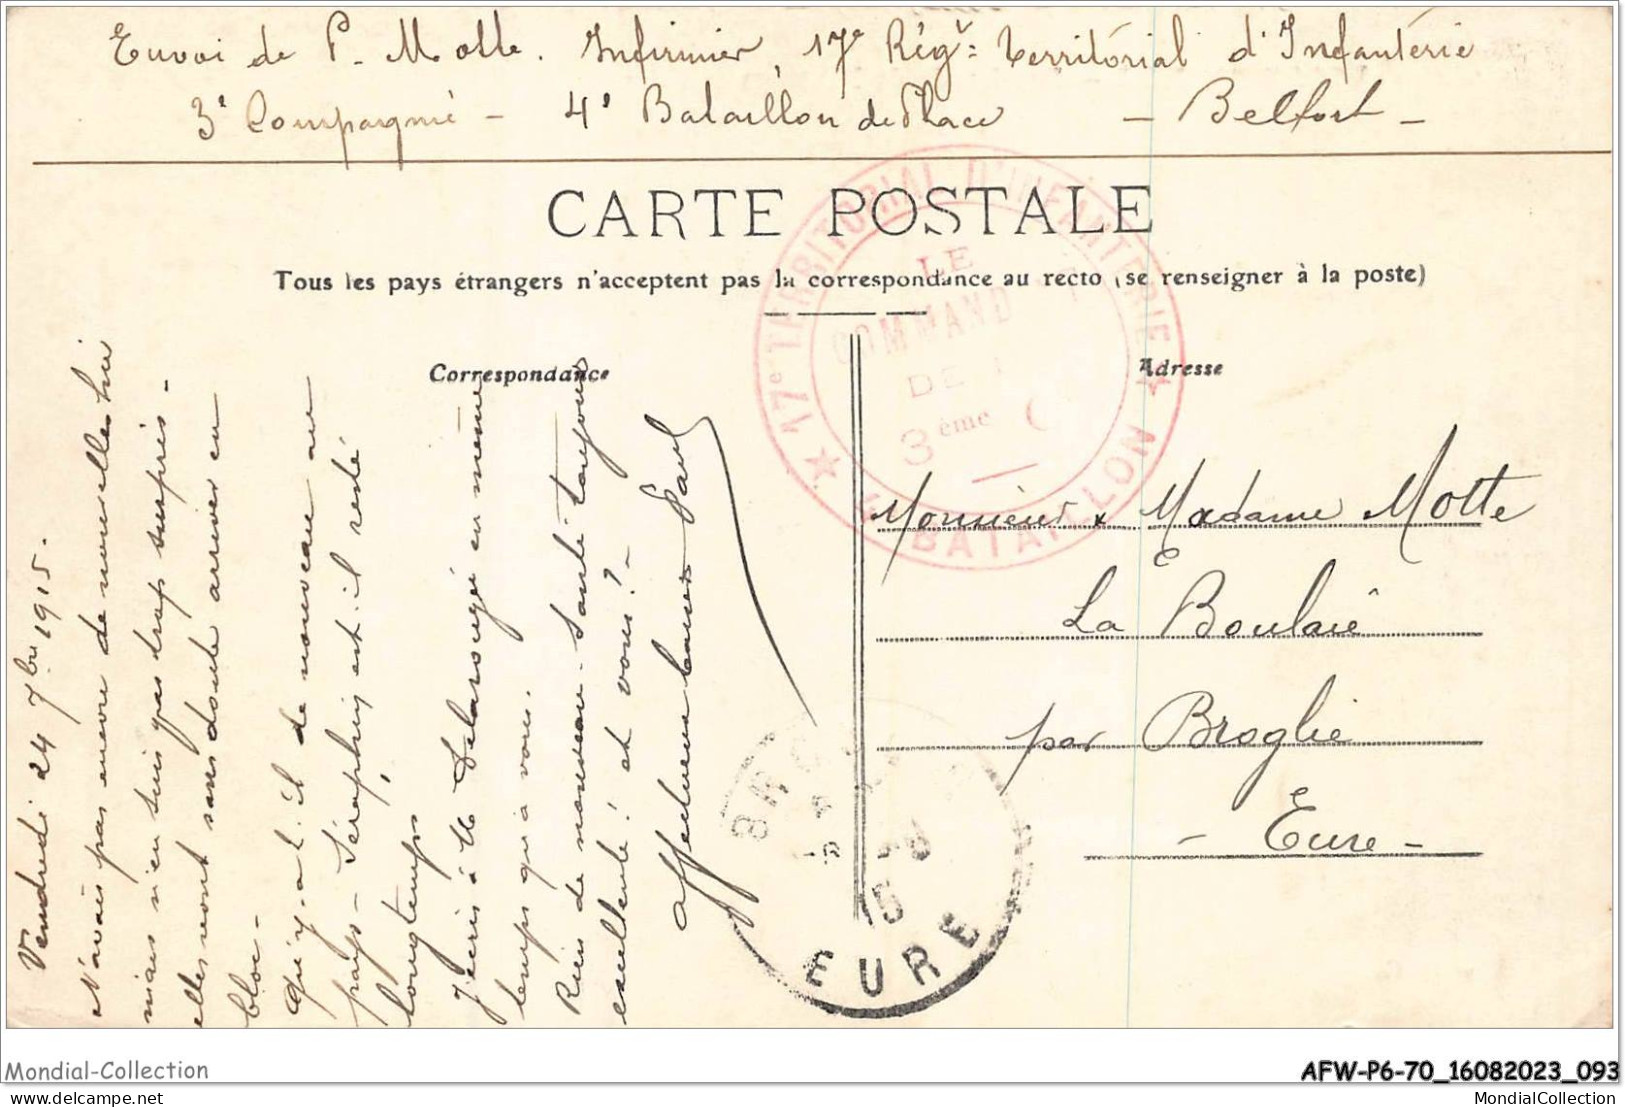 Envoi de P. Motte. Infirmier, 17e Régt: Territorial d'Infanterie
3e Compagnie - 4e Bataillon de Place - Belfort -
CARTE POSTALE
Tous les pays étrangers n'acceptent pas la correspondance au recto (se renseigner à la poste)
Correspondance
Adresse
17e TERRITORIAL D'INFANTERIE
LE
COMMAND
DE
3ème C
BATAILLON
Vendredi 24 7bre 1915.
N'avais pas encore de nouvelles hier
mais n'en suis pas trop surpris -
elles vont sans doute arriver en
bloc -
Qu'y-a-t-il de nouveau au
pays - Séraphin est-il resté
longtemps
J'écris à Me en même
temps qu'à vous.
Rien de nouveau. Santé toujours
excellente! et vous? -
affectueux baisers Paul
Monsieur & Madame Motte
La Boulaie
par Broglie
- Eure -
BRO
15
EURE
Mondial-Collection
AFW-P6-70_16082023_093
delcampe.net
MondialCollection